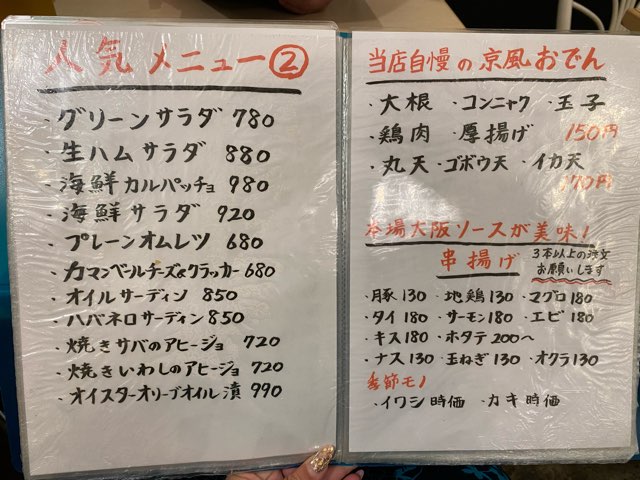 人気メニュー②
・グリーンサラダ 780
・生ハムサラダ 880
・海鮮カルパッチョ 980
・海鮮サラダ 920
・プレーンオムレツ 680
・カマンベールチーズ&クラッカー 680
・オイルサーディン 850
・ハバネロサーディン 850
・焼きサバのアヒージョ 720
・焼きいわしのアヒージョ 720
・オイスターオリーブオイル漬 990
当店自慢の京風おでん
・大根 ・コンニャク ・玉子
・鶏肉 ・厚揚げ 150円
・丸天 ・ゴボウ天 ・イカ天
170円
本場大阪ソースが美味!
串揚げ 3本以上の注文
お願いします
・豚130 ・地鶏130 ・マグロ180
・タイ180 ・サーモン180 ・エビ180
・キス180 ・ホタテ200〜
・ナス130 ・玉ねぎ130 ・オクラ130
季節モノ
・イワシ時価 ・カキ時価